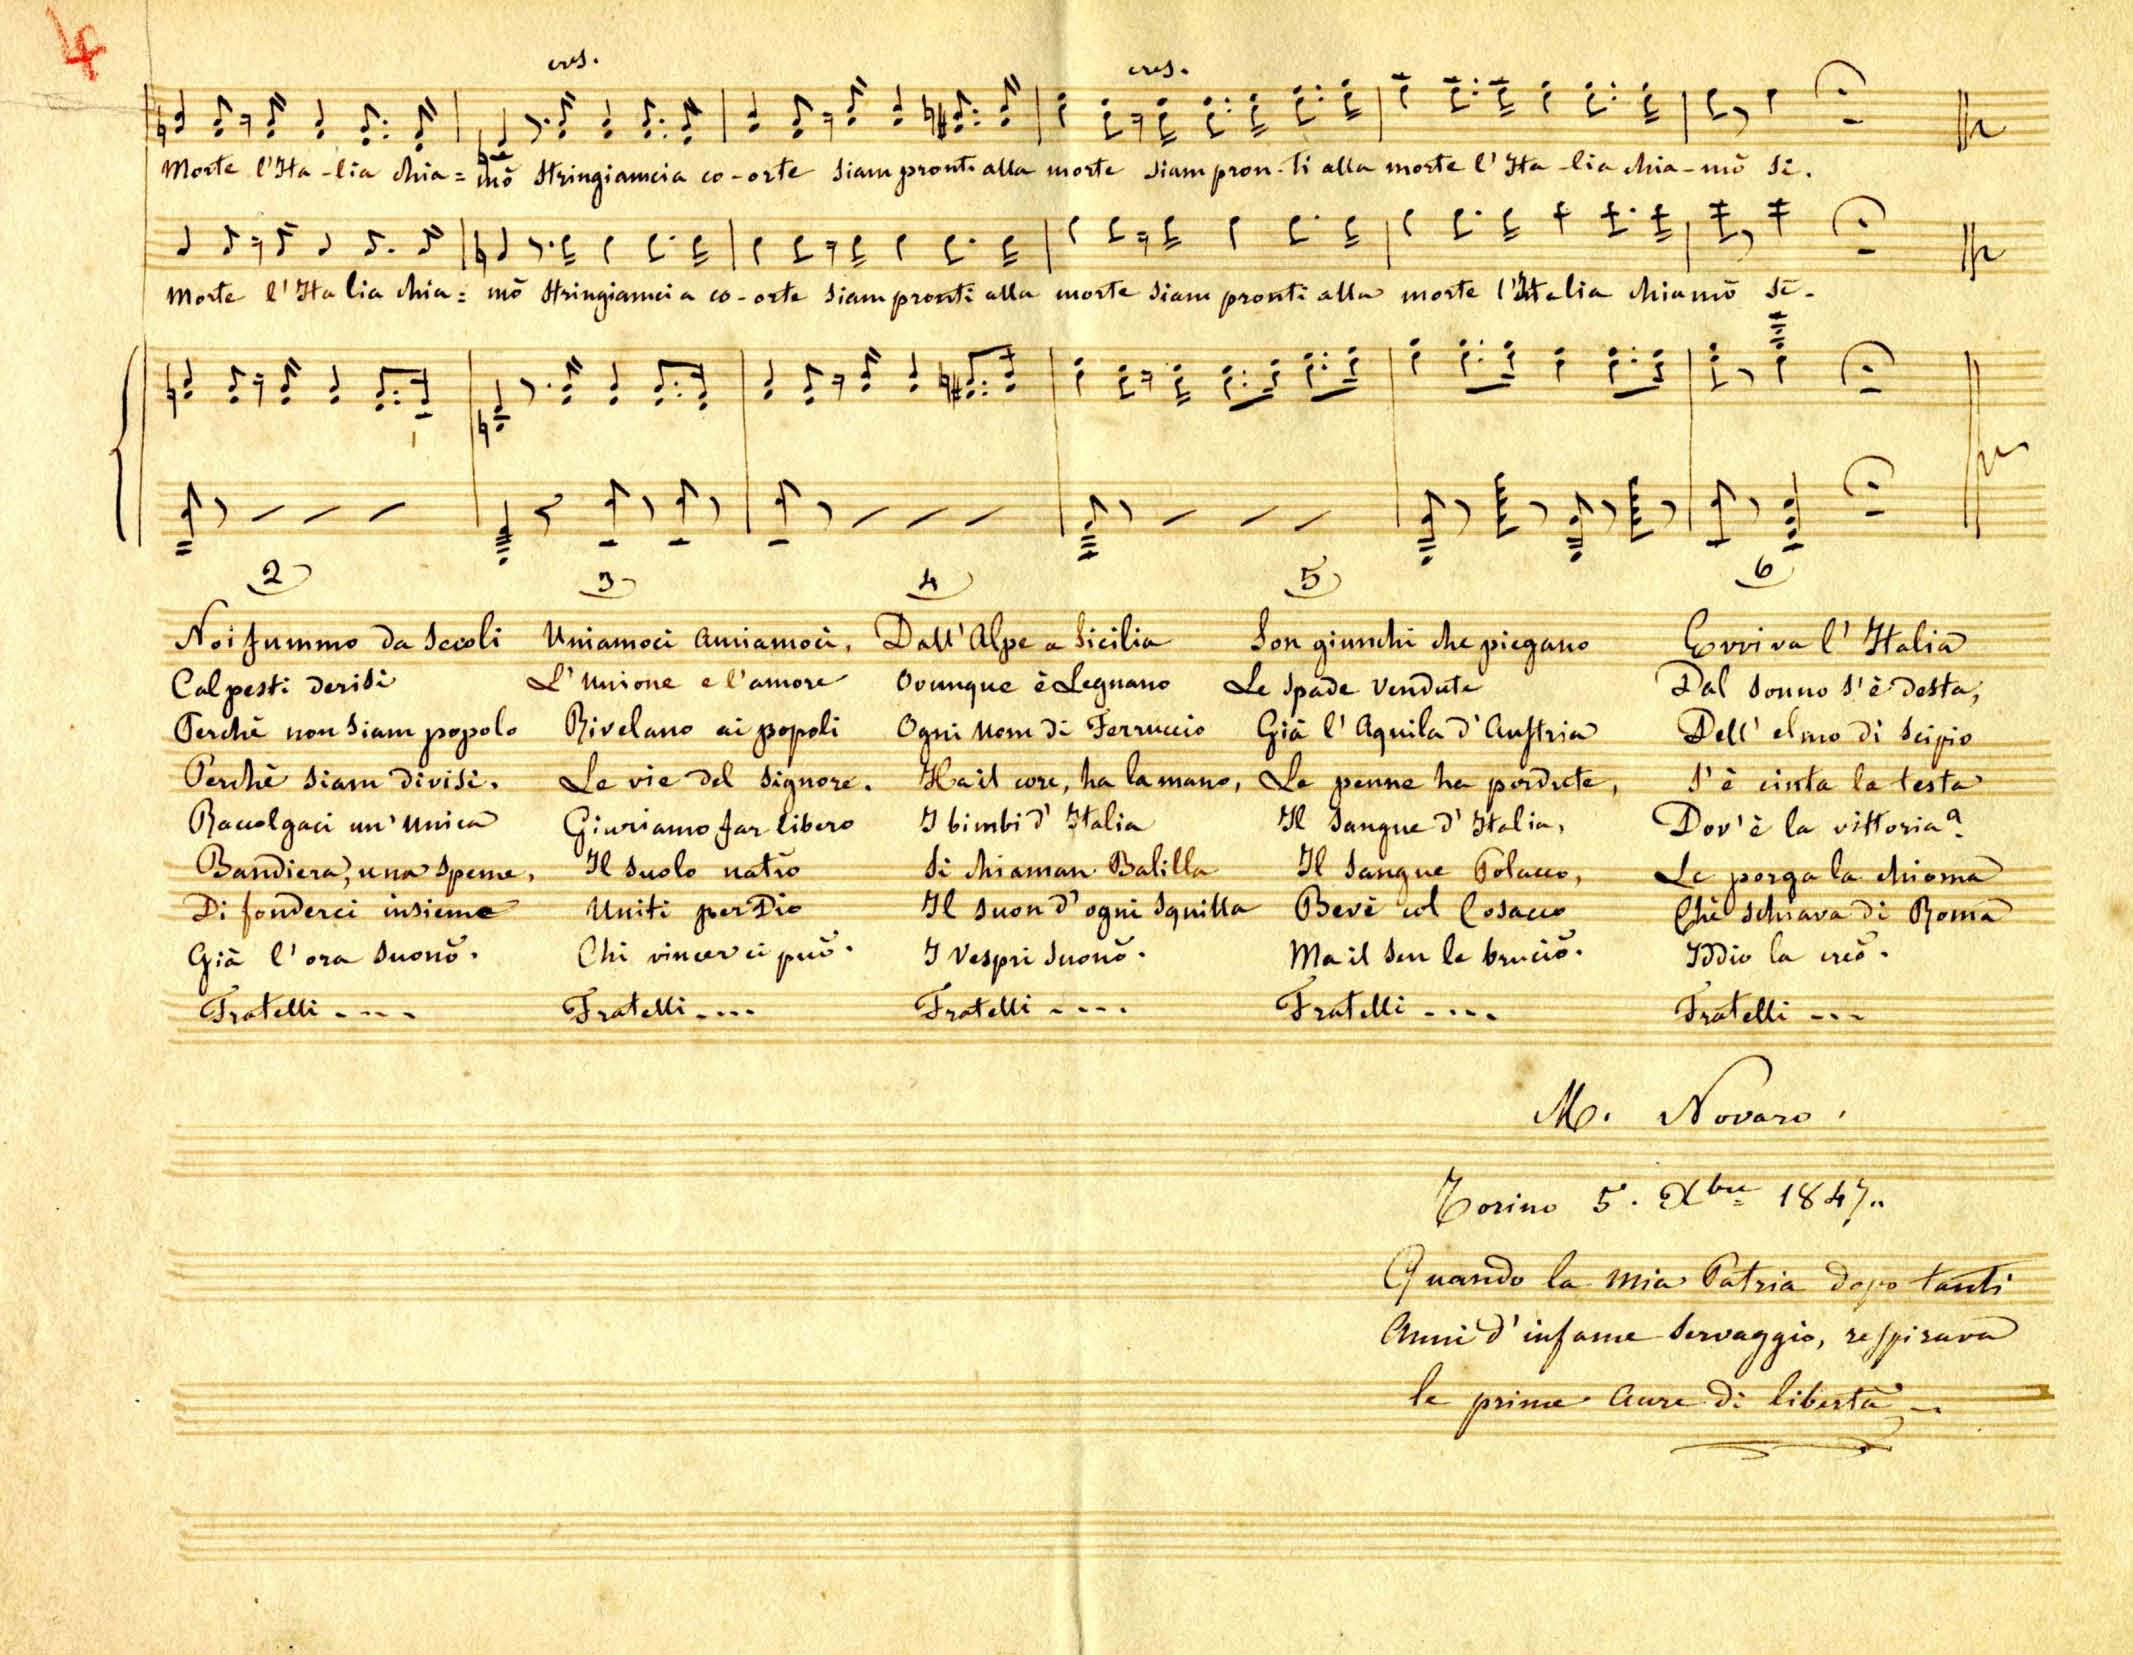 4
cres.
cres.
Morte l'Ita-lia chia= mò stringiamcia co-orte siam pronti alla morte siam pron-ti alla morte l'Ita-lia chia-mò sì.
Morte l'Ita lia chia= mò stringiamci a co-orte siam pronti alla morte siam pronti alla morte l'Italia chiamò sì.
2
Noi fummo da secoli
Calpesti derisi
Perchè non siam popolo
Perchè siam divisi.
Raccolgaci un'unica
Bandiera, una speme,
Di fonderci insieme
Già l'ora suonò.
Fratelli ----
3
Uniamoci amiamoci,
L'unione e l'amore
Rivelano ai popoli
Le vie del Signore.
Giuriamo far libero
Il suolo natio
Uniti per Dio
Chi vincer ci può.
Fratelli ....
4
Dall'Alpe a Sicilia
Ovunque è Legnano
Ogni uom di Ferruccio
Ha il core, ha la mano,
I bimbi d'Italia
Si chiaman Balilla
Il suon d'ogni squilla
I Vespri suonò.
Fratelli ----
5
Son giunchi che piegano
Le spade vendute
Già l'Aquila d'Austria
Le penne ha perdute,
Il sangue d'Italia,
Il sangue Polacco,
Bevè col Cosacco
Ma il sen le bruciò.
Fratelli ----
6
Evviva l'Italia
Dal sonno s'è desta,
Dell'elmo di Scipio
S'è cinta la testa
Dov'è la vittoria?
Le porga la chioma
Chè schiava di Roma
Iddio la creò.
Fratelli ---
M. Novaro.
Torino 5. Xbre 1847.
Quando la mia Patria dopo tanti
Anni d'infame servaggio, respirava
le prime aure di libertà